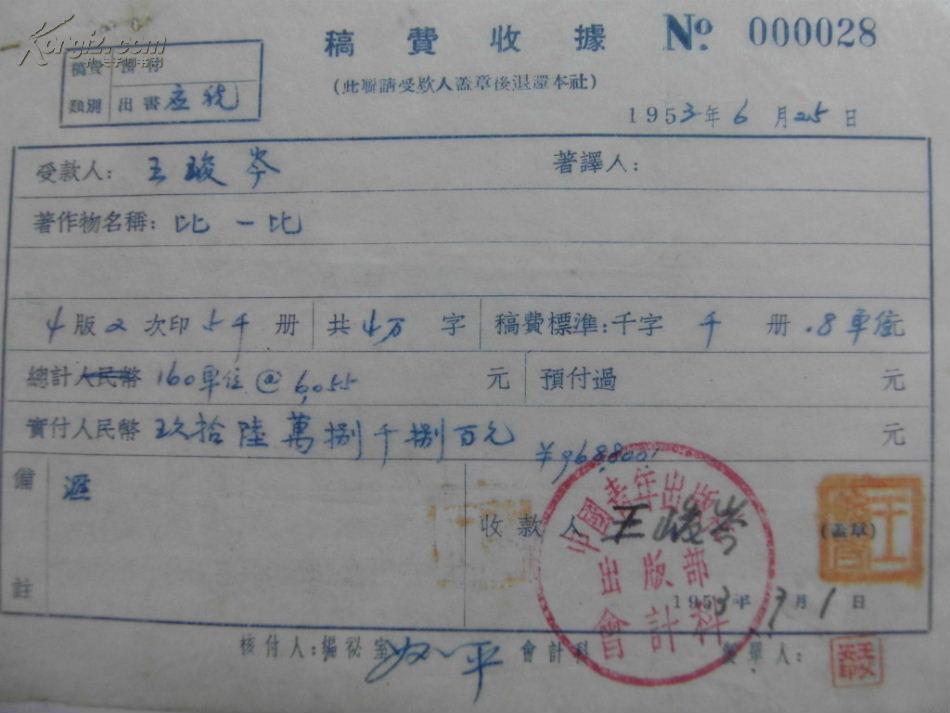 Kongfz.com
稿費收據 № 000028
(此聯請受款人蓋章後退還本社)
稿費
類別 出書 应税
1953年6月25日
受款人: 王峻岑 著譯人:
著作物名稱: 比一比
4版2次印5千册 共4万字 稿費標準:千字 千册 .8單位元
總計人民幣 160單位@6,055 元 預付過 元
實付人民幣 玖拾陸萬捌千捌百元 元
¥968800
備註 滙
收款人 王峻岑 (蓋章)
中國青年出版社
出版部
會計科
1953年7月1日
核付人: 編祕室 會計科 製單人: